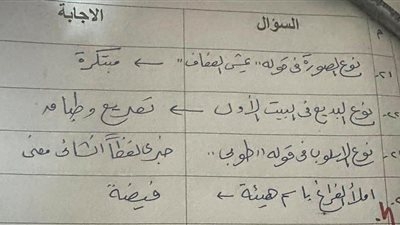 م السؤال الاجابة
٢١- نوع الصورة في قوله "عيش العفاف" ← مبتكرة
٢٢- نوع البديع في البيت الأول ← تصريع وطباق
نوع الاسلوب في قوله "طوبى" خبرى لفظاً انشائى معنى
املأ الفراغ باسم هيئة ← فيضة